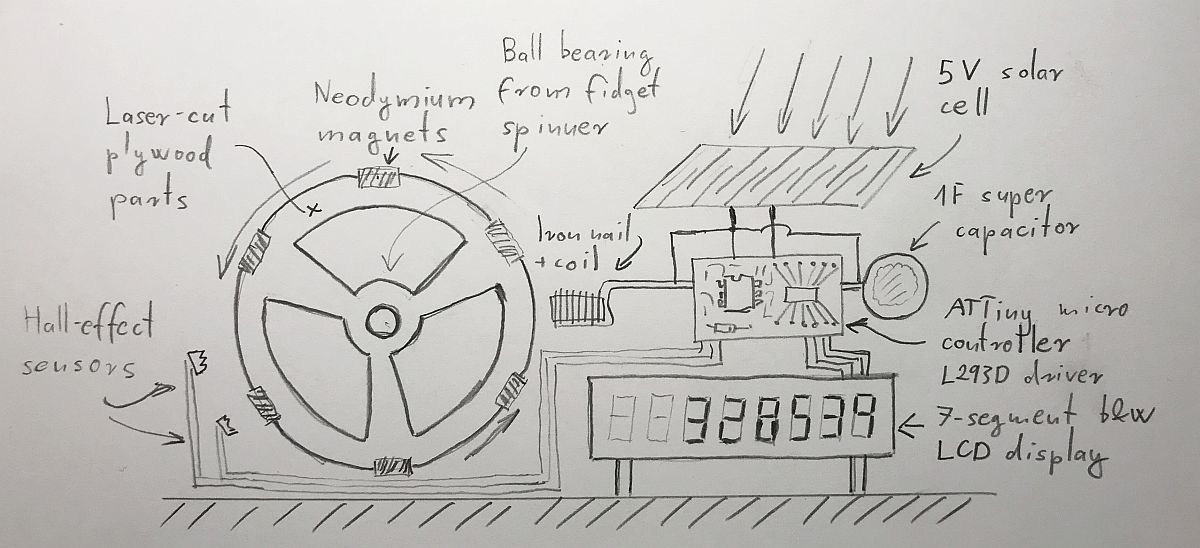 Laser-cut
plywood
parts
Neodymium
magnets
Ball bearing
from fidget
spinner
5V solar
cell
1F super
capacitor
Iron nail
+ coil
Hall-effect
sensors
ATTiny micro
controller
L293D driver
7-segment b&w
LCD display
328534